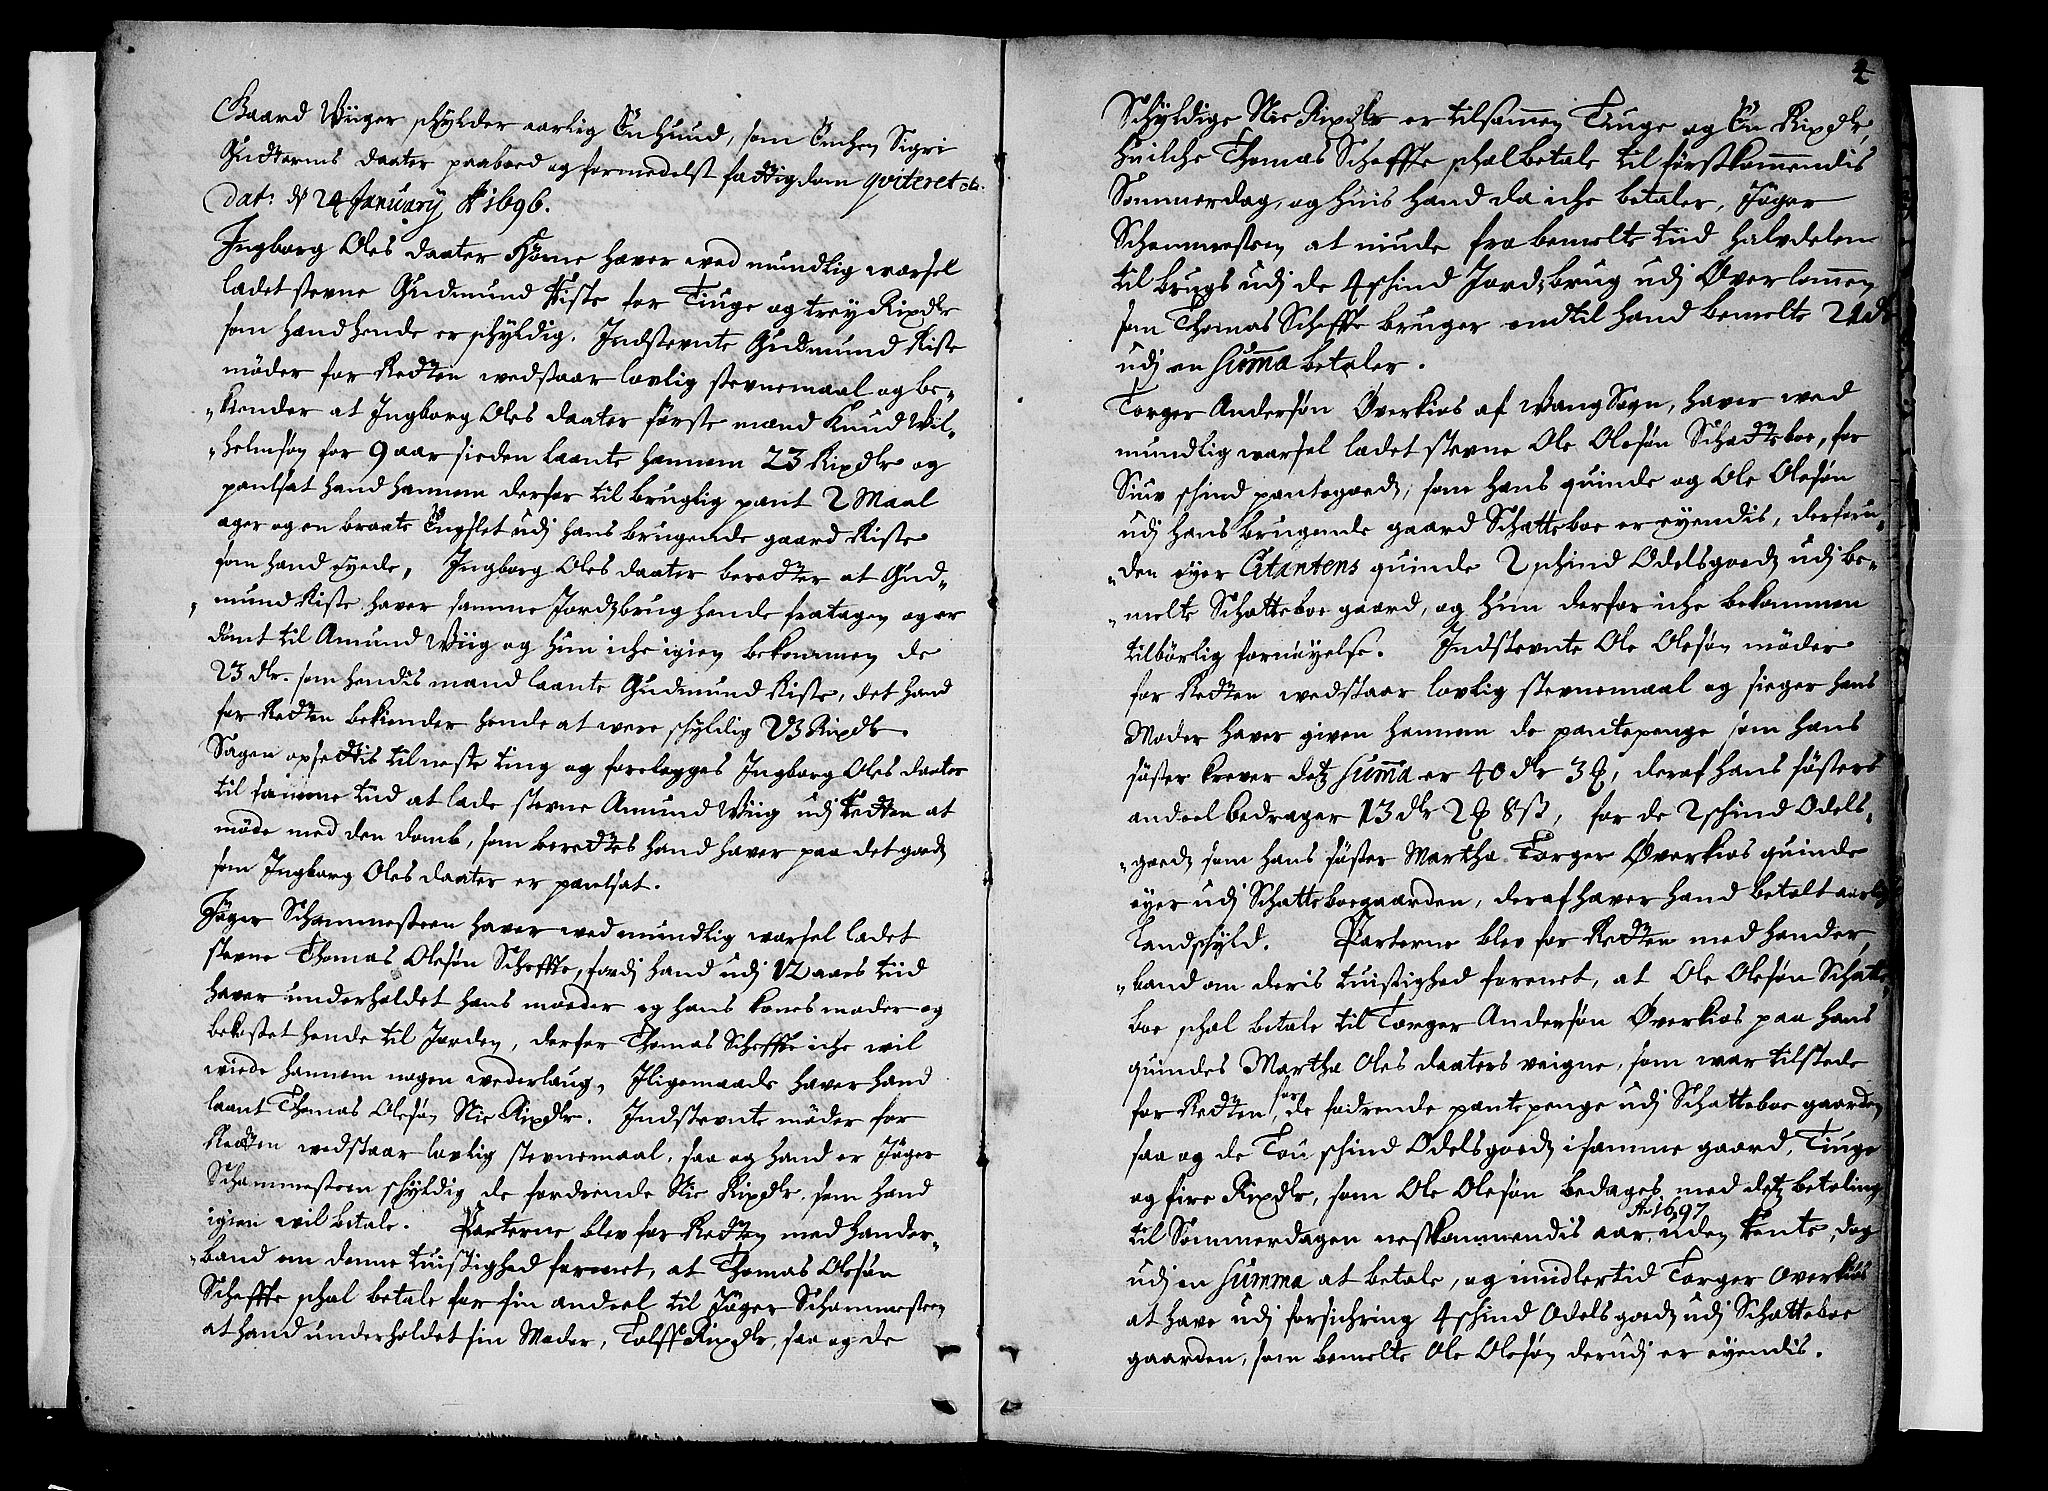 Gaard Wiiger schylder aarlig En huud, som Enchen Sigri
Gudtorms daater paaboed og formedelst fattigdom qviteret etc.
Dat: d 24 January Ao 1696.
Ingborg Oles daater Hörne haver wed mundtlig warsel
ladet stevne Gudmund Riste for Tiuge og trey Rixdlr
som hand hende er schyldig. Indstevnte Gudmund Riste
möder for Retten wedstaar lovlig stevnemaal og be-
-kiender at Ingborg Oles daater förste mand Knud Wil-
-helmsön for 9 aar sieden laante hannem 23 Rixdlr og
pantsat hand hannem derfor til brugelig pant 2 Maal
ager og en braate Engslet udj hans brugende gaard Riste
som hand eyede, Ingborg Oles daater beretter at Gud-
-mund Riste haver samme Jordzbrug hende fratagen og er
dömt til Amund Wiig og hun iche igien bekommen de
23 dlr. som hendis mand laante Gudmund Riste, det hand
for Retten bekiender hende at were schyldig 23 Rixdlr.
Sagen opsettis til neste ting og forelegges Ingborg Oles daater
til samme tiid at lade stevne Amund Wiig udj Retten at
möde med den domb, som berettes hand haver paa det goedz
som Ingborg Oles daater er pantsat.
Jöger Schammesteen haver wed mundtlig warsel ladet
stevne Thomas Olesön Scheffte, fordj hand udj 12 aars tiid
haver underholdet hans moeder og hans kones moder og
bekostet hende til Jorden, derfor Thomas Scheffte iche wil
wiede hannem nogen wederlaug, Iligemaade haver hand
laant Thomas Olesön Nie Rixdlr. Indstevnte möder for
Retten wedstaar lovlig stevnemaal, saa og hand er Jöger
Schammesteen schyldig de fordrende Nie Rixdlr, som hand
igien wil betale. Parterne blev for Retten med hander-
-band om denne tuistighed forenet, at Thomas Olesön
Scheffte schal betale for sin andeel til Jöger Schammesteen
at hand underholdet sin Moder, Tolff Rixdlr, saa og de
4
Schyldige Nie Rixdlr er tilsammen Tiuge og En Rixdlr,
huilche Thomas Scheffte schal betale til förstkommendis
Sommerdag, og huis hand da iche betaler, Jöger
Schammesteen at niude fra bemelte tiid halvdelen
til brugs udj de 4 schind Jordzbrug udj Överlommen
som Thomas Scheffte bruger indtil hand bemelte 21 dlr
udj en Summa betaler.
Torger Andersön Överkios af Wang Sogn, haver wed
mundtlig warsel ladet stevne Ole Olesön Schatteboe, for
Siuv schind pantegoedz, som hans quinde og Ole Olesön
udj hans brugende gaard Schatteboe er eyendis, desforu-
-den eyer Citantens quinde 2 schind Odelsgoedz udj be-
-melte Schatteboe gaard, og hun derfor iche bekommen
tilbörlig fornöyelse. Indstevnte Ole Olesön möder
for Retten wedstaar lovlig stevnemaal og sieger hans
Moder haver given hannem de pantepenge som hans
söster krever detz Summa er 40 dlr 3 ort, deraf hans sösters
andeel bedrager 13 dlr 2 ort 8 ß, for de 2 schind Odels-
-goedz som hans söster Martha Torger Överkios quinde
eyer udj Schatteboegaarden, deraf haver hand betalt aarlig
Landschyld. Parterne blev for Retten med hander
-band om deris tuistighed forenet, at Ole Olesön Schatte-
boe schal betale til Torger Andersön Överkios paa hans
quindes Martha Oles daaters veigne, som war tilstede
for Retten for de fodrende pantepenge udj Schatteboe gaarden
saa og de Tou schind Odelsgoedz i samme gaard, Tiuge
og fire Rixdlr, som Ole Olesön bedages med detz betaling
til Sommerdagen nestkommendis aar Ao 1697 uden Rente, dog
udj en Summa at betale, og imidlertid Torger Overkios
at have udj forsichring 4 schind Odelsgoedz udj Schatteboe
gaarden, som bemelte Ole Olesön derudj er eyendis.